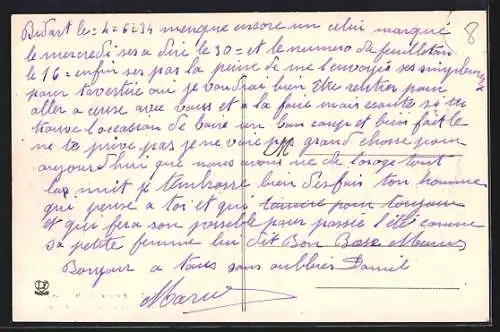 Bidart le = 4 = 6 = 34 menque encore un celui marqué
le mercredi ses a dire le 30 = et le numero du feuilleton
le 16 = enfin ses pas la peine de me l'envoyer ses simplement
pour t'avertire oui je voudrai bien être pour
aller a avec vous et a la foire mais ecoute si tu
trouve l'occasion de boire un bon coup et bien fait le
ne te prive pas je ne vois pas grand chose pour
aujourd'hui que nous avons eu de l'orage tout
la nuit je t'embrasse bien des fois ton homme
que pense a toi et qui t'aimere pour toujours
et qui fera son possible pour passée l'été comme
sa petite femme lui dit Bon Mamie
Bonjour a tous sans oublier Daniel
Marius
8